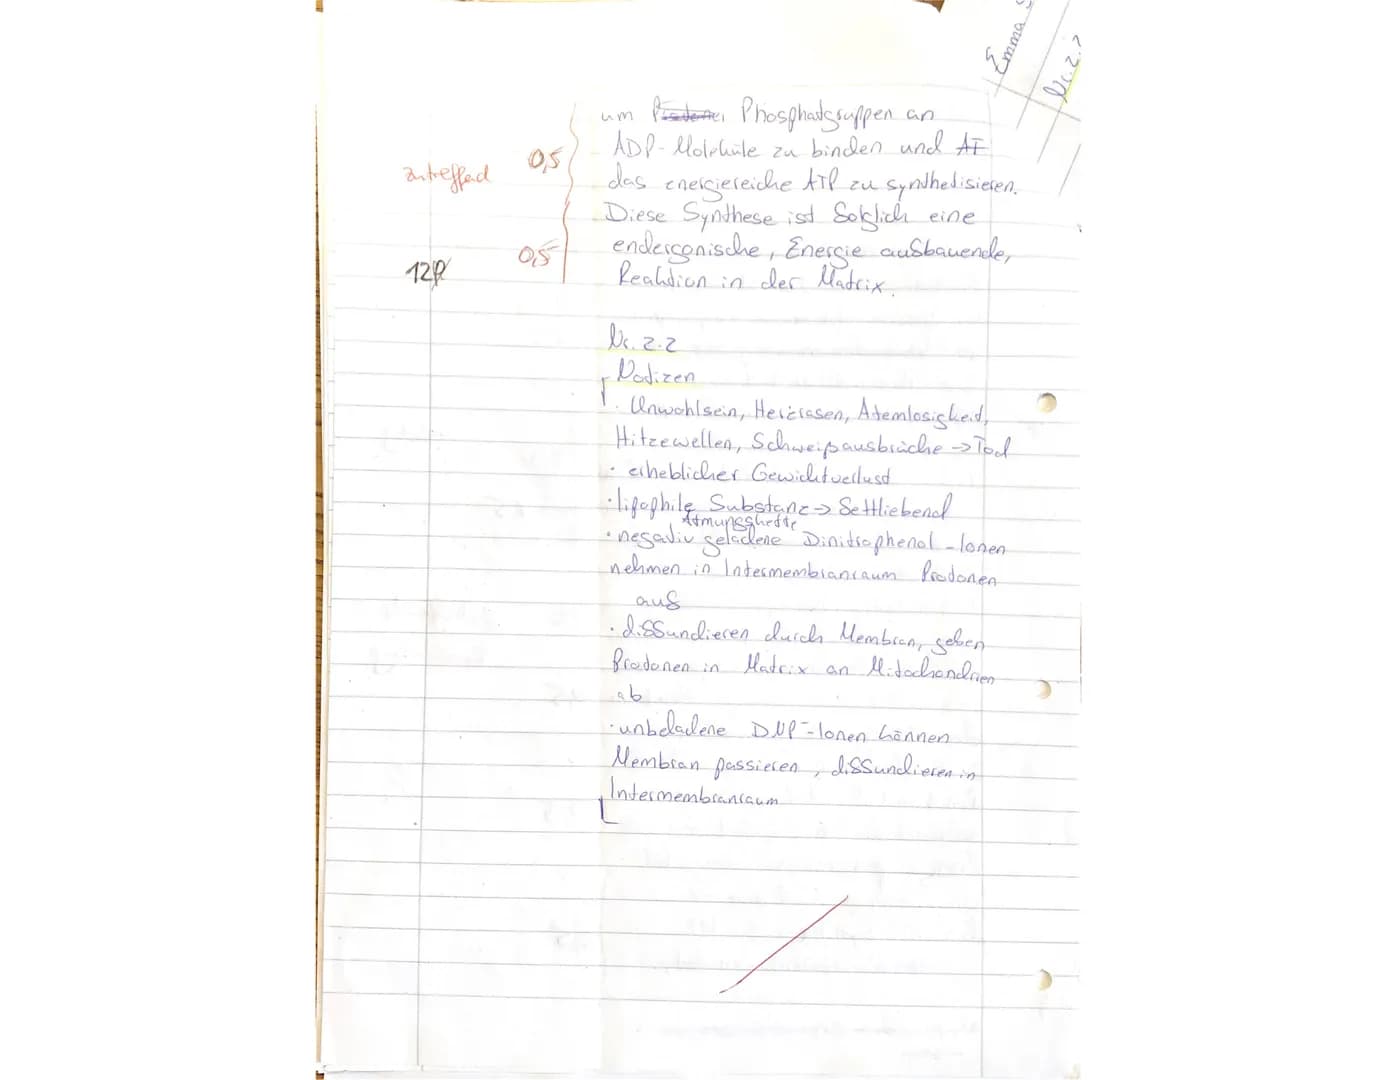 Emma
Nr. 2.2
um Phosphatgruppen an
ADP-Moleküle zu binden und
zutreffend 0,5
das energiereiche ATP zu synthetisieren.
Diese Synthese ist folglich eine
endergonische, Energie aufbauende,
0,5
12P
Reaktion in der Matrix.
Nr. 2.2
Notizen
· Unwohlsein, Herzrasen, Atemlosigkeit,
Hitzewellen, Schweißausbrüche -> Tod
· erheblicher Gewichtverlust
· lipophile Substanz -> fettliebend
Atmungskette
· negativ geladene Dinitrophenol-Ionen
nehmen in Intermembranraum Protonen
auf
· diffundieren durch Membran, geben
Protonen in Matrix an Mitochondrien
ab
· unbeladene DNP⁻-Ionen können
Membran passieren, diffundieren in
Intermembranraum